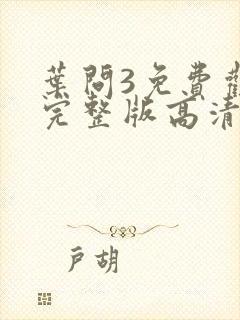 葉問3免費觀
完整版高清
戶胡